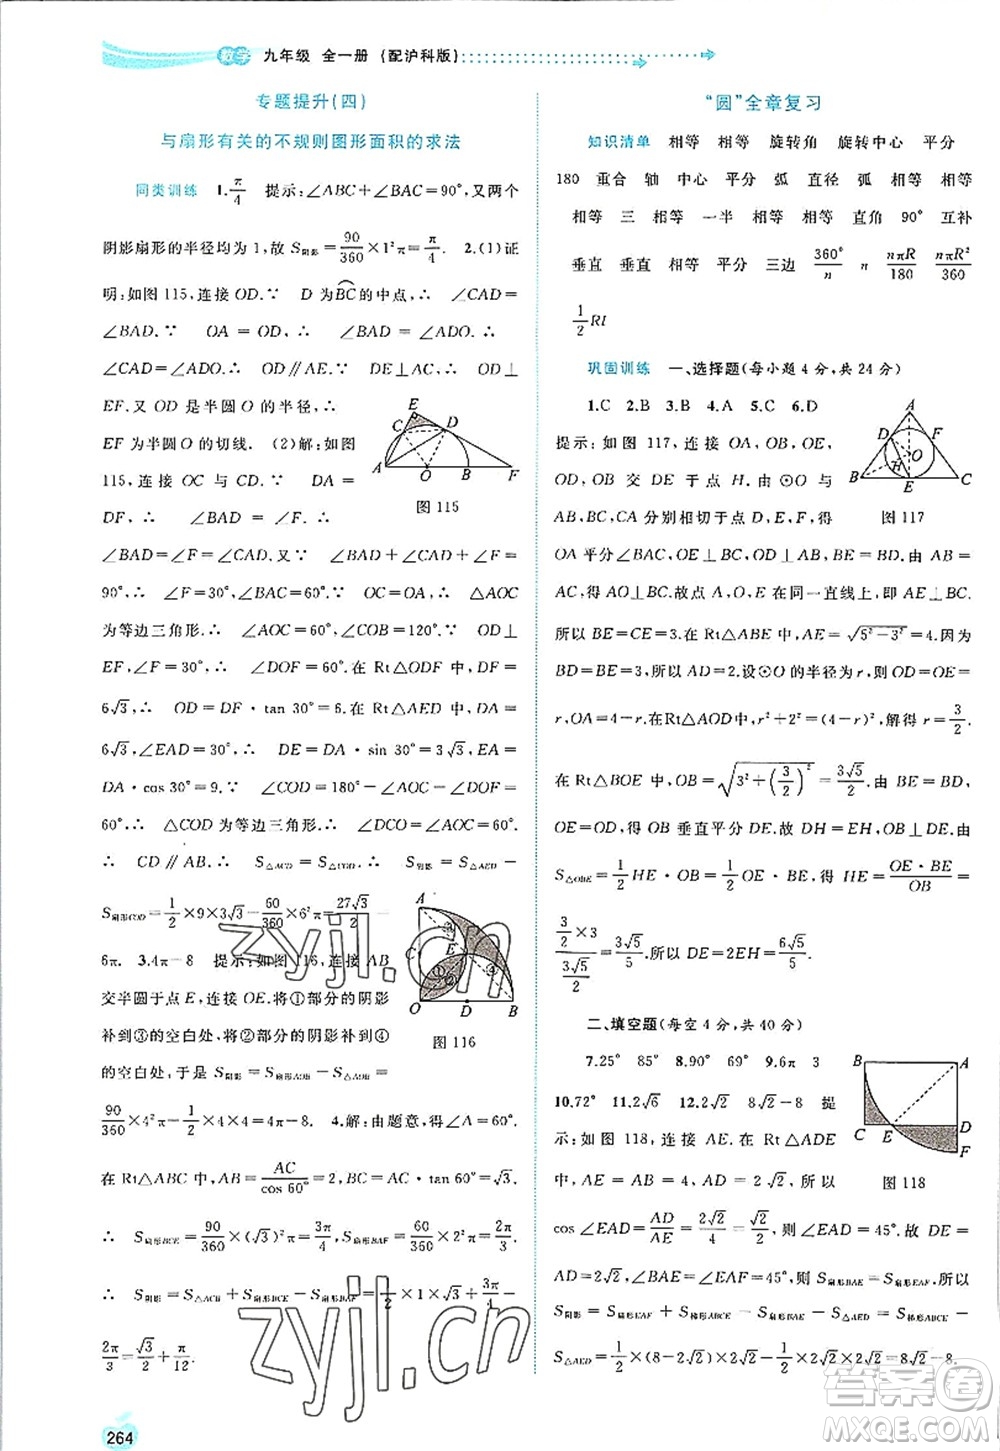 数学 九年级 全一册 (配沪科版)
专题提升(四)
与扇形有关的不规则图形面积的求法
同类训练 1.π/4 提示:∠ABC+∠BAC=90°,又两个
阴影扇形的半径均为 1,故 S阴影=90/360×1²π=π/4. 2.(1)证
明:如图 115,连接 OD.∵ D 为BC的中点,∴ ∠CAD=
∠BAD.∵ OA=OD,∴ ∠BAD=∠ADO.∴
∠CAD=∠ADO.∴ OD∥AE.∵ DE⊥AC,∴ OD⊥
EF.又 OD 是半圆 O 的半径,∴
EF 为半圆 O 的切线. (2)解:如图
115,连接 OC 与 CD.∵ DA=
DF,∴ ∠BAD=∠F.∴
∠BAD=∠F=∠CAD.又∵ ∠BAD+∠CAD+∠F=
90°,∴ ∠F=30°,∠BAC=60°.∵ OC=OA,∴ △AOC
为等边三角形.∴ ∠AOC=60°,∠COB=120°.∵ OD⊥
EF,∠F=30°,∴ ∠DOF=60°.在 Rt△ODF 中,DF=
6√3,∴ OD=DF·tan 30°=6.在 Rt△AED 中,DA=
6√3,∠EAD=30°,∴ DE=DA·sin 30°=3√3,EA=
DA·cos 30°=9.∵ ∠COD=180°-∠AOC-∠DOF=
60°,∴ △COD 为等边三角形.∴ ∠OCD=∠AOC=60°.
∴ CD∥AB.∴ S△ACD=S△COD.∴ S阴影=S△AED-
S扇形COD=1/2×9×3√3-60/360×6²π=27√3/2-
6π. 3.4π-8 提示:如图 116,连接 AB
交半圆于点 E,连接 OE.将①部分的阴影
补到③的空白处,将②部分的阴影补到④
的空白处,则 S阴影=S扇形AOB-S△AOB=
90/360×4²π-1/2×4×4=4π-8. 4.解:由题意,得∠A=60°.
在 Rt△ABC 中,AB=AC/cos 60°=2,BC=AC·tan 60°=√3.
∴ S扇形BCE=90/360×(√3)²π=3π/4,S扇形BAF=60/360×2²π=2π/3.
∴ S阴影=S△ACB+S扇形BCE-S扇形BAF=1/2×1×√3+3π/4-
2π/3=√3/2+π/12.
A B C D E F O
图 115
A B D E O ① ② ③ ④
图 116
“圆”全章复习
知识清单 相等 相等 旋转角 旋转中心 平分
180 重合 轴 中心 平分 弧 直径 弧 相等 相等
相等 三 相等 一半 相等 直角 90° 互补
垂直 垂直 相等 平分 三边 360°/n n nπR/180 nπR²/360
1/2 Rl
巩固训练 一、选择题(每小题 4 分,共 24 分)
1.C 2.B 3.B 4.A 5.C 6.D
提示:如图 117,连接 OA,OB,OE,
OB 交 DE 于点 H.由⊙O 与
AB,BC,CA 分别相切于点 D,E,F,得
OA 平分∠BAC,OE⊥BC,OD⊥AB,BE=BD.由 AB=
AC,得 AO⊥BC.所以点 A,O,E 在同一直线上,即 AE⊥BC.
所以 BE=CE=3.在 Rt△ABE 中,AE=√(5²-3²)=4.因为
BD=BE=3,所以 AD=2.设⊙O 的半径为 r,则 OD=OE=
r,OA=4-r.在 Rt△AOD 中,r²+2²=(4-r)²,解得 r=3/2.
在 Rt△BOE 中,OB=√(3²+(3/2)²)=3√5/2.由 BE=BD,
OE=OD,得 OB 垂直平分 DE.故 DH=EH,OB⊥DE.因为
S△OBE=1/2 HE·OB=1/2 OE·BE,所以 HE=OE·BE/OB=
(3/2×3)/(3√5/2)=3√5/5.所以 DE=2EH=6√5/5.
A B C D E F H O
图 117
二、填空题(每空 4 分,共 40 分)
7.25° 85° 8.90° 69° 9.6π 3
10.72° 11.2√6 12.2√2 8√2-8 提
示:如图 118,连接 AE.在 Rt△ADE 中,
cos∠EAD=AD/AE=2√2/4=√2/2,则∠EAD=45°.故 DE=
AD=2√2,∠BAE=∠EAF=45°,则 S扇形BAE=S扇形EAF.所以
S阴影=S扇形EAF+S梯形ABCE-S扇形BAE-S△AED=S梯形ABCE-
S△AED=1/2×(8-2√2)×2√2-1/2×2√2×2√2=8√2-8.
A B C D E F
图 118
264
zyjl.cn
zyjl.cn
答案圈
MXQE.COM